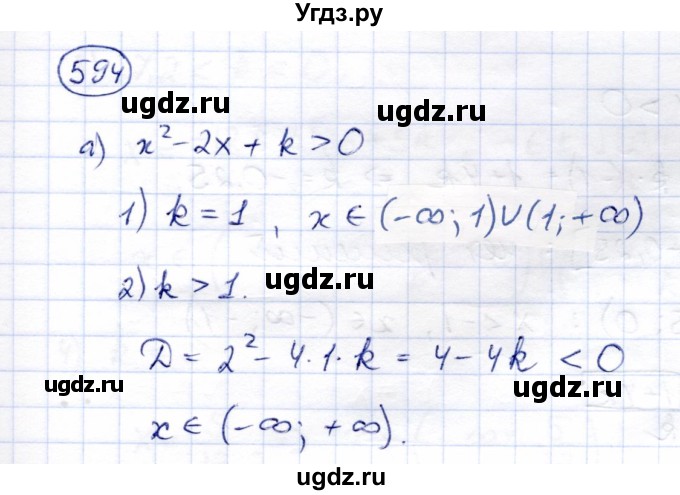 Угдз.ру
594
ugdz.ru
ugdz.ru
а) x² - 2x + k > 0
1) k = 1, x ∈ (-∞; 1) ∪ (1; +∞)
ugdz.ru
2) k > 1.
D = 2² - 4·1·k = 4 - 4k < 0
ugdz.ru
ugdz.ru
ugdz.ru
x ∈ (-∞; +∞).
ugdz.ru